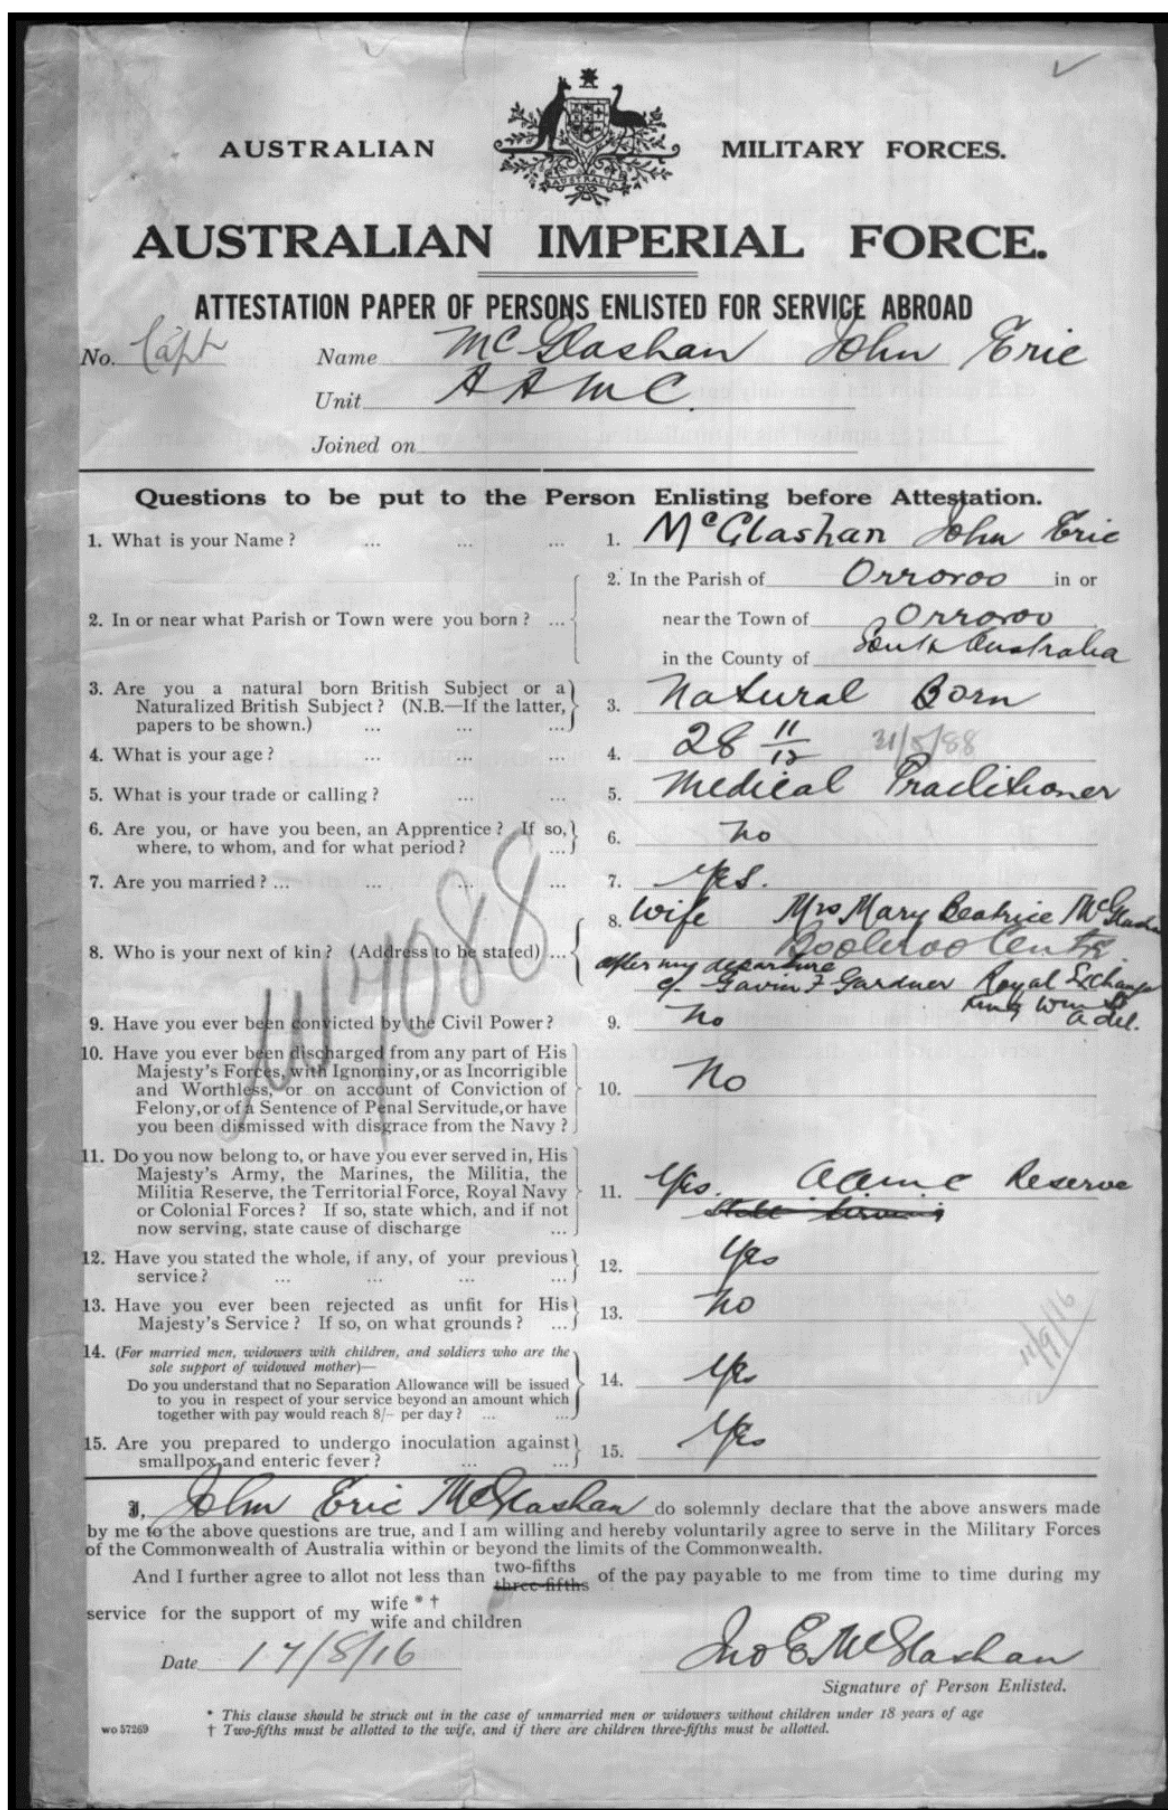 AUSTRALIAN MILITARY FORCES.
AUSTRALIA
AUSTRALIAN IMPERIAL FORCE.
ATTESTATION PAPER OF PERSONS ENLISTED FOR SERVICE ABROAD
No. Capt Name McGlashan John Eric
Unit A A M C.
Joined on
Questions to be put to the Person Enlisting before Attestation.
1. What is your Name? ... ... ... 1. McGlashan John Eric
2. In or near what Parish or Town were you born? ... 2. In the Parish of Orroroo in or
near the Town of Orroroo
in the County of South Australia
3. Are you a natural born British Subject or a
Naturalized British Subject? (N.B.—If the latter,
papers to be shown.) ... ... ... 3. Natural Born
4. What is your age? ... ... ... 4. 28 11/12 31/8/88
5. What is your trade or calling? ... ... 5. Medical Practitioner
6. Are you, or have you been, an Apprentice? If so,
where, to whom, and for what period? ... 6. No
7. Are you married? ... ... ... ... 7. Yes.
8. Who is your next of kin? (Address to be stated) ... 8. Wife Mrs Mary Beatrice McGlashan
Booleroo Centre
after my departure
c/- Gavin F Gardner Royal Exchange
King Wm St
Adel.
9. Have you ever been convicted by the Civil Power? 9. No
10. Have you ever been discharged from any part of His
Majesty's Forces, with Ignominy, or as Incorrigible
and Worthless, or on account of Conviction of
Felony, or of a Sentence of Penal Servitude, or have
you been dismissed with disgrace from the Navy? 10. No
W7088
11. Do you now belong to, or have you ever served in, His
Majesty's Army, the Marines, the Militia, the
Militia Reserve, the Territorial Force, Royal Navy
or Colonial Forces? If so, state which, and if not
now serving, state cause of discharge ... 11. Yes. AAMC Reserve
still serving
12. Have you stated the whole, if any, of your previous
service? ... ... ... ... 12. Yes
13. Have you ever been rejected as unfit for His
Majesty's Service? If so, on what grounds? ... 13. No
11/9/16
14. (For married men, widowers with children, and soldiers who are the
sole support of widowed mother)—
Do you understand that no Separation Allowance will be issued
to you in respect of your service beyond an amount which
together with pay would reach 8/- per day? ... ... 14. Yes
15. Are you prepared to undergo inoculation against
smallpox and enteric fever? ... ... 15. Yes
I, John Eric McGlashan do solemnly declare that the above answers made
by me to the above questions are true, and I am willing and hereby voluntarily agree to serve in the Military Forces
of the Commonwealth of Australia within or beyond the limits of the Commonwealth.
And I further agree to allot not less than two-fifths three-fifths of the pay payable to me from time to time during my
service for the support of my wife * †
wife and children
Date 17/8/16 Jno E. McGlashan
Signature of Person Enlisted.
* This clause should be struck out in the case of unmarried men or widowers without children under 18 years of age
wo 57269 † Two-fifths must be allotted to the wife, and if there are children three-fifths must be allotted.